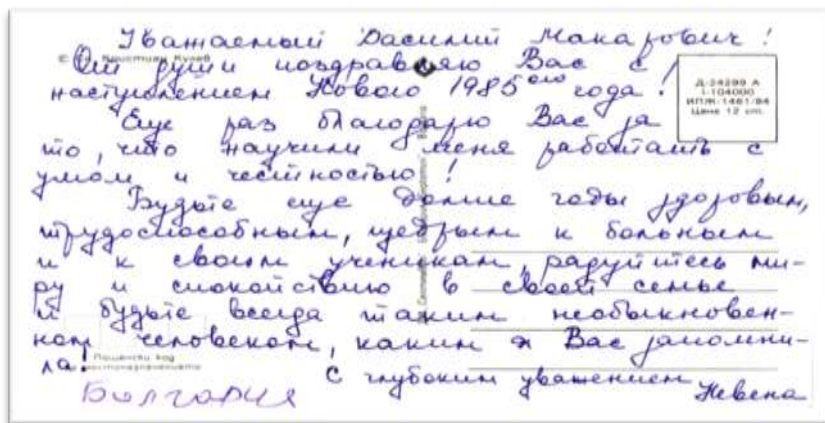 Уважаемый Василий Макарович!
От души поздравляю Вас с
наступлением Нового 1985ого года!
Еще раз благодарю Вас за
то, что научили меня работать с
умом и честностью!
Будьте еще долгие годы здоровым,
трудоспособным, щедрым к больным
и к своим ученикам, радуйтесь ми-
ру и спокойствию в своей семье
и будьте всегда таким необыкновен-
ном человеком, каким я Вас запомни-
ла!
С глубоким уважением
Невена
Болгария
© Кристиан Кулев
Д-24299 А
I-104000
ИПЖ-1481/84
Цена 12 ст.
Пощенски код
местоназначението